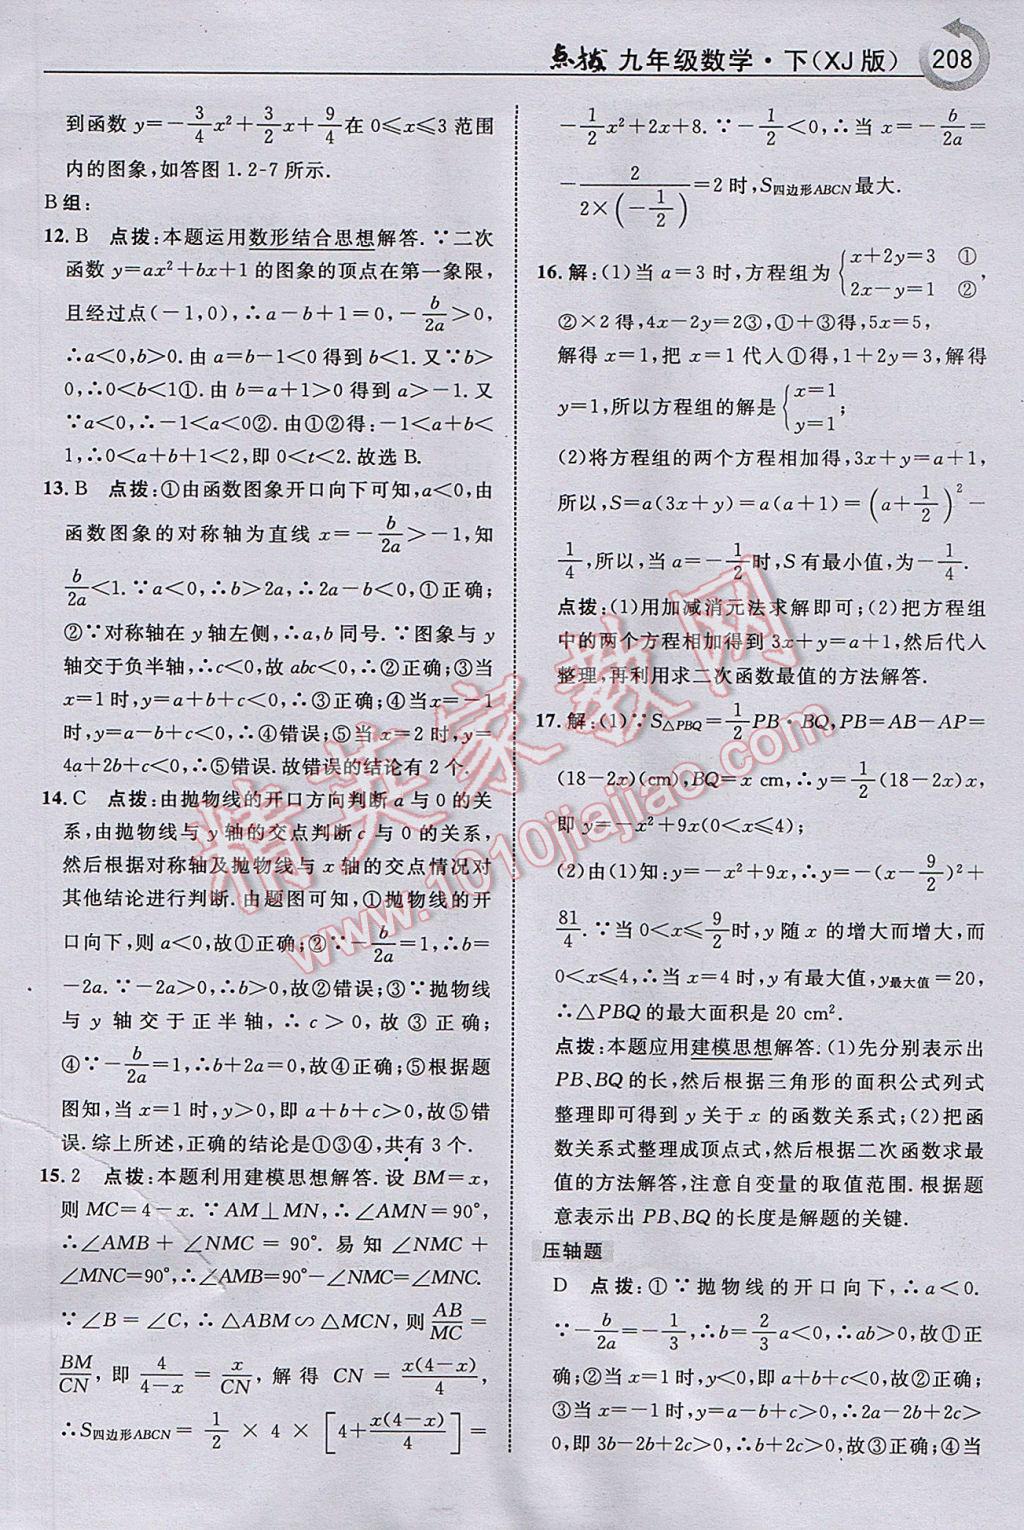 点拨 九年级数学·下(XJ版) 208
到函数 y=-3/4x²+3/2x+9/4 在 0≤x≤3 范围
内的图象,如答图1.2-7所示.
B组:
12. B 点拨:本题运用数形结合思想解答.∵二次
函数 y=ax²+bx+1 的图象的顶点在第一象限,
且经过点(-1,0),∴a-b+1=0,-b/2a>0,
∴a<0,b>0.由 a=b-1<0 得到 b<1.又∵b>
0,∴0<b<1①.由 b=a+1>0 得到 a>-1.又
∵a<0,∴-1<a<0②.由①②得:-1<a+b<
1,∴0<a+b+1<2,即 0<t<2.故选 B.
13. B 点拨:①由函数图象开口向下可知,a<0,由
函数图象的对称轴为直线 x=-b/2a>-1,知
b/2a<1.∵a<0,∴b>2a,∴2a-b<0,①正确;
②∵对称轴在 y 轴左侧,∴a,b 同号.∵图象与 y
轴交于负半轴,∴c<0,故 abc<0,∴②正确;③当
x=1 时,y=a+b+c<0,∴③正确;④当 x=-1
时,y=a-b+c<0,∴④错误;⑤当 x=2 时,y=
4a+2b+c<0,∴⑤错误.故错误的结论有 2 个.
14. C 点拨:由抛物线的开口方向判断 a 与 0 的关
系,由抛物线与 y 轴的交点判断 c 与 0 的关系,
然后根据对称轴及抛物线与 x 轴的交点情况对
其他结论进行判断.由题图可知,①抛物线的开
口向下,则 a<0,故①正确;②∵-b/2a=1,∴b=
-2a.∵-2a>0,∴b>0,故②错误;③∵抛物线
与 y 轴交于正半轴,∴c>0,故③正确;
④∵-b/2a=1,∴b+2a=0,故④正确;⑤根据题
图知,当 x=1 时,y>0,即 a+b+c>0,故⑤错
误.综上所述,正确的结论是①③④,共有 3 个.
15. 2 点拨:本题利用建模思想解答.设 BM=x,
则 MC=4-x.∵AM⊥MN,∴∠AMN=90°,
∴∠AMB+∠NMC=90°.易知∠NMC+
∠MNC=90°,∴∠AMB=90°-∠NMC=∠MNC.
∵∠B=∠C,∴△ABM∽△MCN,则 AB/MC=
BM/CN,即 4/(4-x)=x/CN,解得 CN=x(4-x)/4,
∴S四边形ABCN=1/2×4×[4+x(4-x)/4]=
-1/2x²+2x+8.∵-1/2<0,∴当 x=-b/2a=
-2/(2×(-1/2))=2 时,S四边形ABCN最大.
16. 解:(1)当 a=3 时,方程组为{x+2y=3 ① 2x-y=1 ②,
②×2 得,4x-2y=2③,①+③得,5x=5,
解得 x=1,把 x=1 代入①得,1+2y=3,解得
y=1,所以方程组的解是{x=1 y=1;
(2)将方程组的两个方程相加得,3x+y=a+1,
所以,S=a(3x+y)=a(a+1)=(a+1/2)²-
1/4,所以,当 a=-1/2时,S 有最小值,为-1/4.
点拨:(1)用加减消元法求解即可;(2)把方程组
中的两个方程相加得到 3x+y=a+1,然后代入
整理,再利用求二次函数最值的方法解答.
17. 解:(1)∵S△PBQ=1/2PB·BQ,PB=AB-AP=
(18-2x)(cm),BQ=x cm,∴y=1/2(18-2x)x,
即 y=-x²+9x(0<x≤4);
(2)由(1)知:y=-x²+9x,∴y=-(x-9/2)²+
81/4.∵当 0<x≤9/2时,y 随 x 的增大而增大,而
0<x≤4,∴当 x=4 时,y 有最大值,y最大值=20,
∴△PBQ 的最大面积是 20 cm².
点拨:本题应用建模思想解答.(1)先分别表示出
PB、BQ 的长,然后根据三角形的面积公式列式
整理即可得到 y 关于 x 的函数关系式;(2)把函
数关系式整理成顶点式,然后根据二次函数求最
值的方法解答,注意自变量的取值范围.根据题
意表示出 PB、BQ 的长度是解题的关键.
压轴题
D 点拨:①∵抛物线的开口向下,∴a<0.
∵-b/2a=-1/3,∴b=2/3a<0,∴ab>0,故①正
确;②当 x=1 时,y<0,即 a+b+c<0,故②正确;
③当 x=-1 时,y=a-b+c>0,∴2a-2b+2c>
0,即 3b-2b+2c>0,∴b+2c>0,故③正确;④当
精英家教网
www.1010jiajiao.com